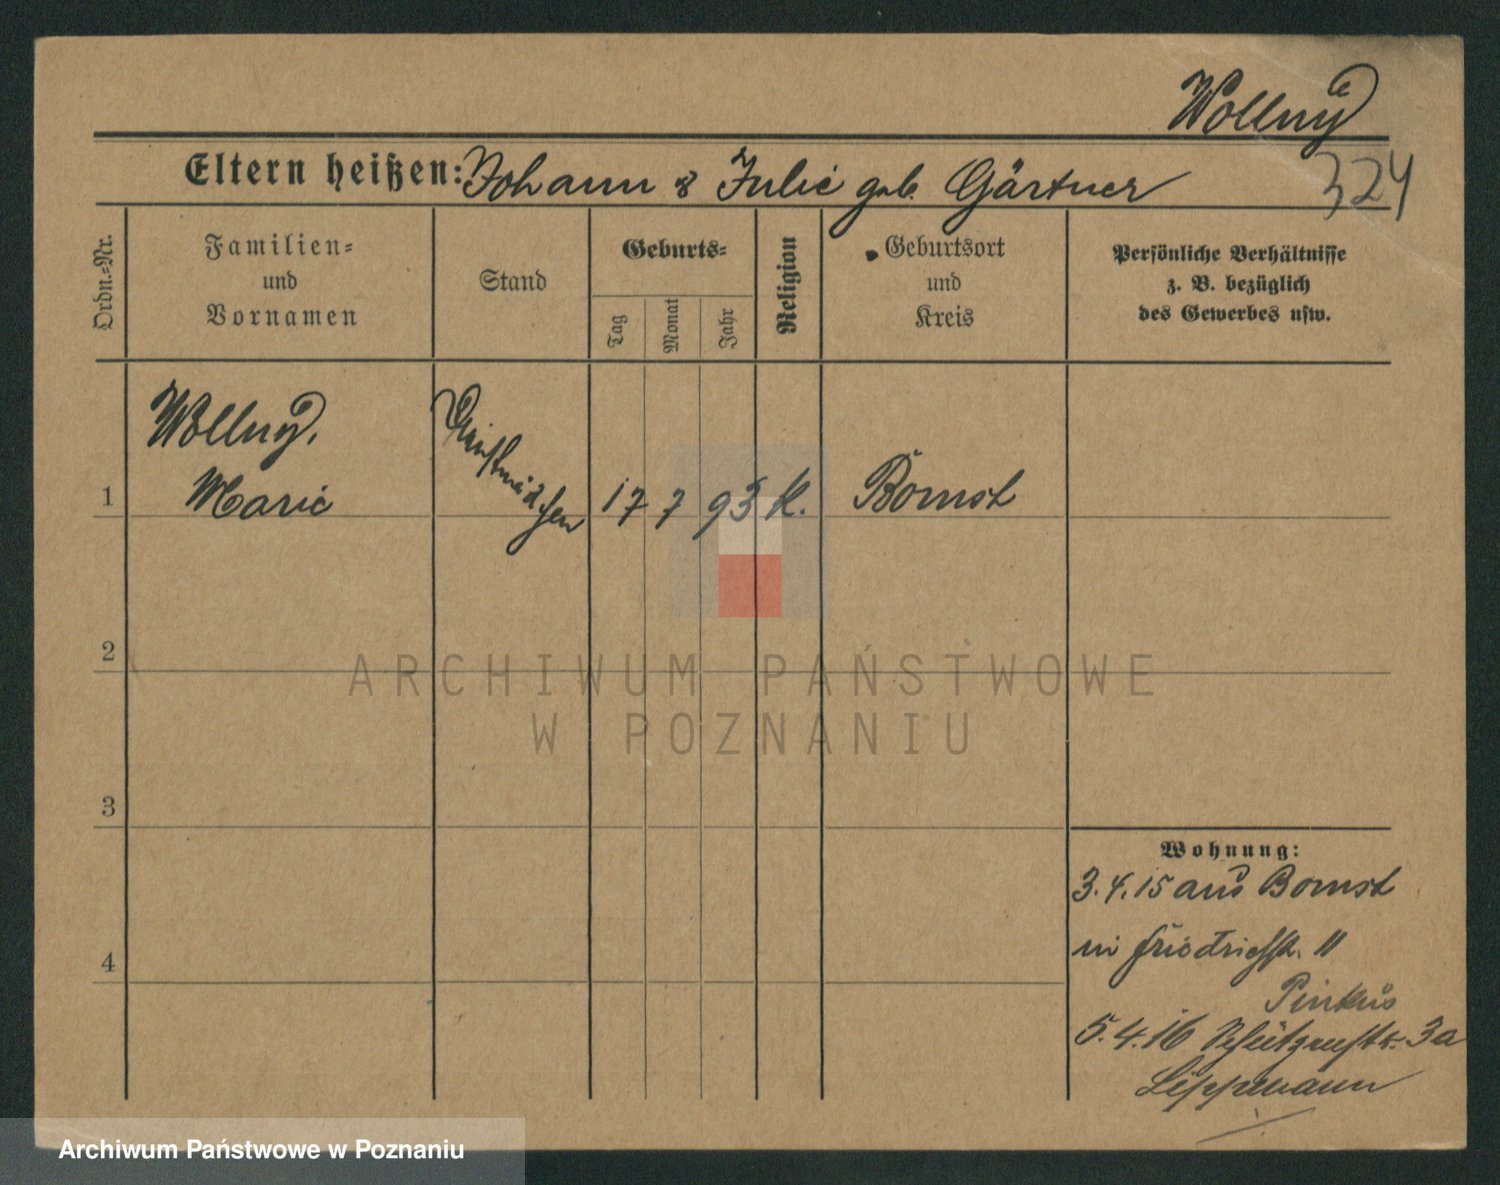 Wollny
324
Eltern heißen: Johann & Julie geb. Gärtner
Ordn.=Nr.
Familien=
und
Vornamen
Stand
Geburts=
Tag
Monat
Jahr
Religion
Geburtsort
und
Kreis
Persönliche Verhältnisse
z. B. bezüglich
des Gewerbes usw.
Wollny,
1 Marie Dienstmädchen 17 7 93 k. Bomst
2
3
4
Wohnung:
3.4.15 aus Bomst
in Friedrichstr. 11
Pinkus
5.4.16 Schützenstr. 3a
Lippmann
ARCHIWUM PAŃSTWOWE
W POZNANIU
Archiwum Państwowe w Poznaniu